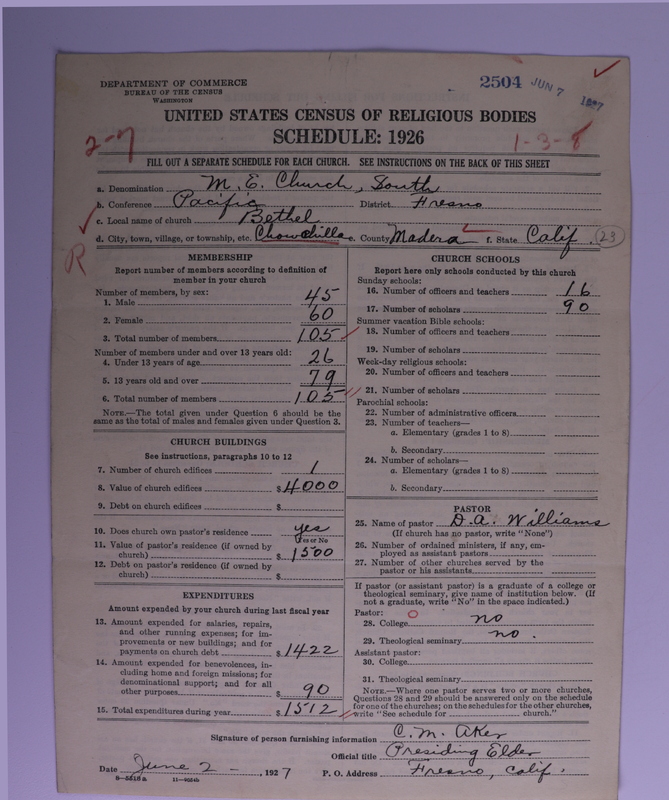 DEPARTMENT OF COMMERCE
BUREAU OF THE CENSUS
WASHINGTON
2504 JUN 7 1927
UNITED STATES CENSUS OF RELIGIOUS BODIES
SCHEDULE: 1926
2-7
1-3-8
FILL OUT A SEPARATE SCHEDULE FOR EACH CHURCH. SEE INSTRUCTIONS ON THE BACK OF THIS SHEET
a. Denomination M. E. Church, South
b. Conference Pacific District Fresno
c. Local name of church Bethel
d. City, town, village, or township, etc. Chowchilla e. County Madera f. State Calif. (23)
R
MEMBERSHIP
Report number of members according to definition of
member in your church
Number of members, by sex:
1. Male 45
2. Female 60
3. Total number of members 105
Number of members under and over 13 years old:
4. Under 13 years of age 26
5. 13 years old and over 79
6. Total number of members 105
NOTE.—The total given under Question 6 should be the
same as the total of males and females given under Question 3.
CHURCH BUILDINGS
See instructions, paragraphs 10 to 12
7. Number of church edifices 1
8. Value of church edifices $4000
9. Debt on church edifices $
10. Does church own pastor's residence yes
Yes or No
11. Value of pastor's residence (if owned by
church) $1500
12. Debt on pastor's residence (if owned by
church) $
EXPENDITURES
Amount expended by your church during last fiscal year
13. Amount expended for salaries, repairs,
and other running expenses; for im-
provements or new buildings; and for
payments on church debt $1422
14. Amount expended for benevolences, in-
cluding home and foreign missions; for
denominational support; and for all
other purposes $90
15. Total expenditures during year $1512
CHURCH SCHOOLS
Report here only schools conducted by this church
Sunday schools:
16. Number of officers and teachers 16
17. Number of scholars 90
Summer vacation Bible schools:
18. Number of officers and teachers
19. Number of scholars
Week-day religious schools:
20. Number of officers and teachers
21. Number of scholars
Parochial schools:
22. Number of administrative officers
23. Number of teachers—
a. Elementary (grades 1 to 8)
b. Secondary
24. Number of scholars—
a. Elementary (grades 1 to 8)
b. Secondary
PASTOR
25. Name of pastor D. A. Williams
(If church has no pastor, write "None")
26. Number of ordained ministers, if any, em-
ployed as assistant pastors
27. Number of other churches served by the
pastor or his assistants
If pastor (or assistant pastor) is a graduate of a college or
theological seminary, give name of institution below. (If
not a graduate, write "No" in the space indicated.)
Pastor:
28. College no
29. Theological seminary no.
Assistant pastor:
30. College
31. Theological seminary
NOTE.—Where one pastor serves two or more churches,
Questions 28 and 29 should be answered only on the schedule
for one of the churches; on the schedules for the other churches,
write "See schedule for church."
Signature of person furnishing information C. M. Aker
Official title Presiding Elder
Date June 2 —, 1927 P. O. Address Fresno, Calif.